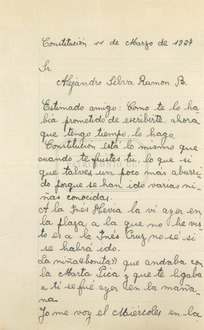 Constitución 11 de Marzo de 1937
Sr.
Alejandro Silva Ramon B.
Estimado amigo: Como te lo ha-
bía prometido de escribirte, ahora
que tengo tiempo, lo hago.
Constitucion está lo mismo que
cuando te fuistes tú, lo que sí
que talves un poco más aburri
do porque se han ido varias ni-
ñas conocidas.
A la Inés Hevia la vi ayer en
la plaza a la que no he vis-
to es a la Inés Cruz no se si
se habrá ido.
La niña "bonita" que andaba con
la Marta Pica y que te ligaba
a ti se fué ayer en la maña-
na.
Yo me voy el Miercoles en la